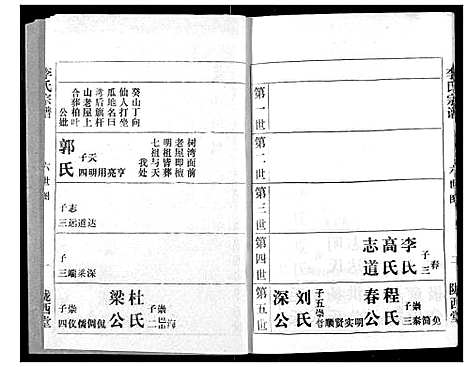 李氏宗谱
六世图
陇西堂
第一世
第二世
第三世
第四世
第五世
李氏
高氏
志道
子三
春
程氏
春公
子三
崇
秦简免
刘氏
深公
子五
崇
哲贤顺实明
李氏宗谱
六世图
一
陇西堂
树湾面前
老屋即檀
明祖皆葬
七祖与天
我处
癸山丁向
仙人打坐
瓜地名曰
湾后旗杆
山老屋上
合葬柏叶
公妣
郭氏
子四
天
亨亮用明
子三
志
达道远
子三
深采端
杜氏
子二
崇
梁公
子四
崇
侃倜侨仪